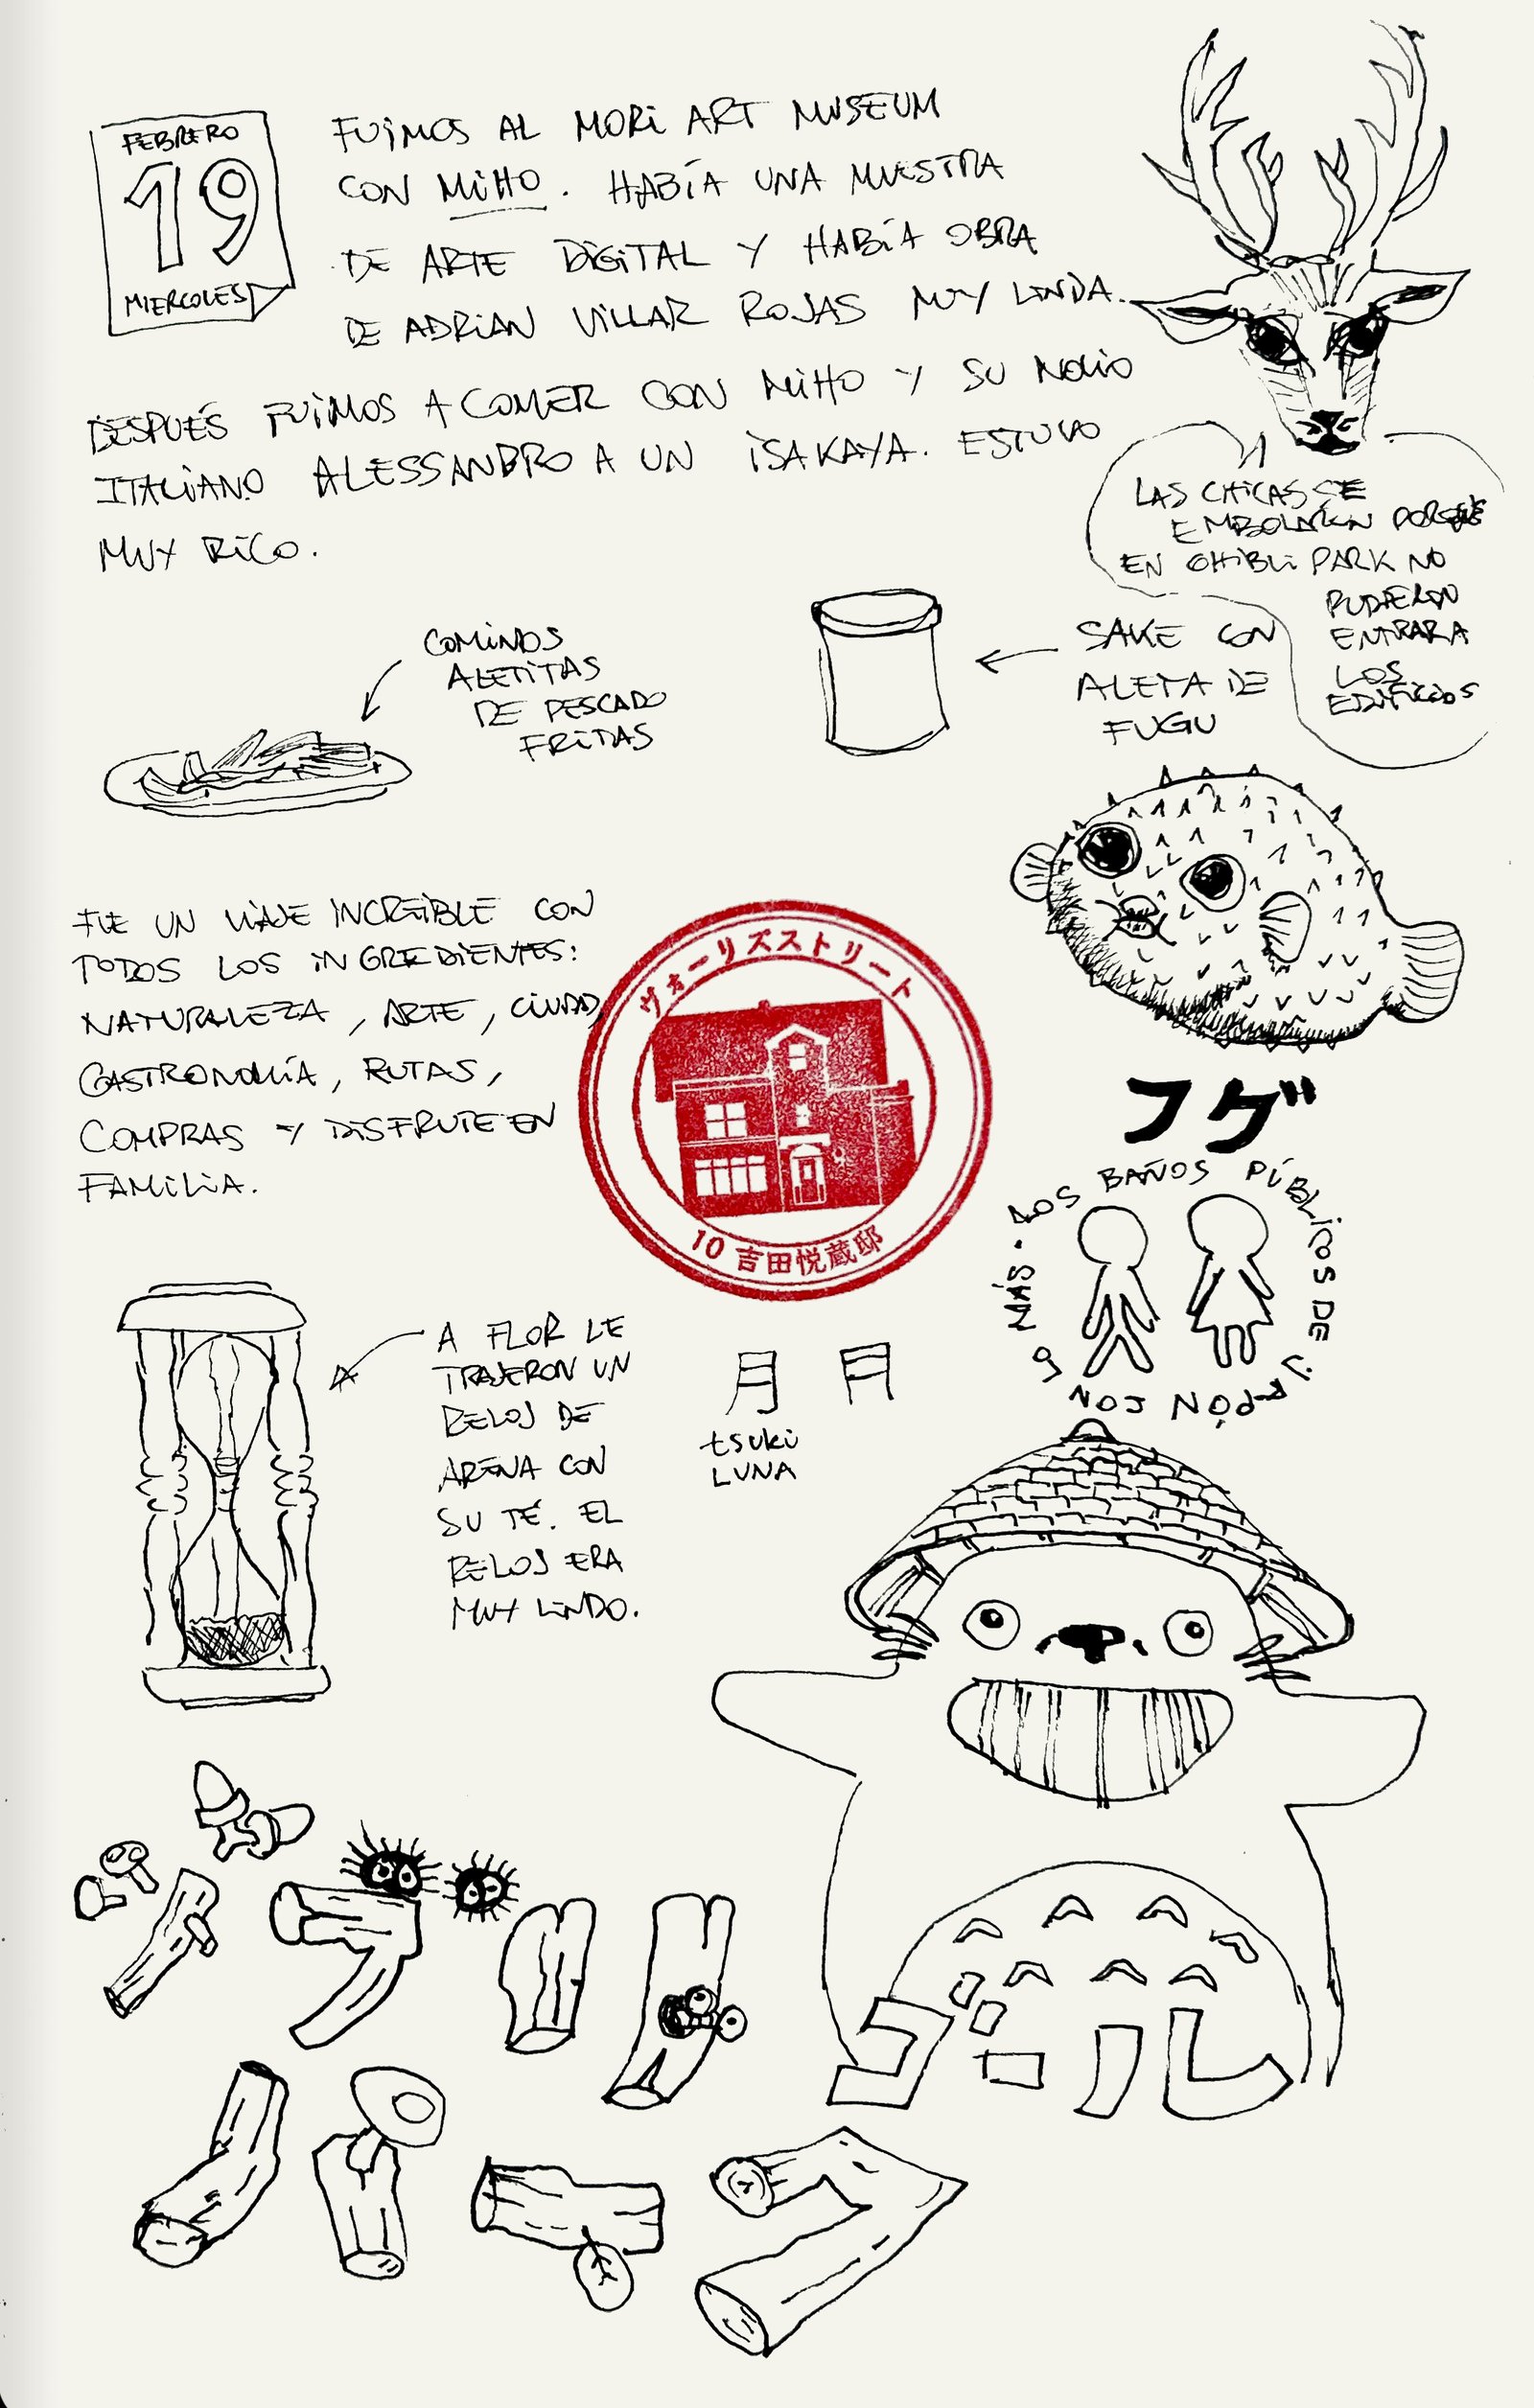 FEBRERO
19
MIERCOLES
FUIMOS AL MORI ART MUSEUM
CON MIHO. HABÍA UNA MUESTRA
DE ARTE DIGITAL Y HABÍA OBRA
DE ADRIAN VILLAR ROJAS MUY LINDA.
DESPUÉS FUIMOS A COMER CON MIHO Y SU NOVIO
ITALIANO ALESSANDRO A UN ISAKAYA. ESTUVO
MUY RICO.
LAS CHICAS SE
EMBOLARON PORQUE
EN GHIBLI PARK NO
PUDIERON
ENTRAR A
LOS
EDIFICIOS
COMIMOS
ALETITAS
DE PESCADO
FRITAS
SAKE CON
ALETA DE
FUGU
フグ
FUE UN VIAJE INCREIBLE CON
TODOS LOS INGREDIENTES:
NATURALEZA, ARTE, CIUDAD,
GASTRONOMÍA, RUTAS,
COMPRAS Y DISFRUTE EN
FAMILIA.
ヴォーリズストリート
10 吉田悦蔵邸
LOS BAÑOS PÚBLICOS DE JAPÓN SON LO MÁS.
A FLOR LE
TRAJERON UN
RELOJ DE
ARENA CON
SU TÉ. EL
RELOJ ERA
MUY LINDO.
月 月
tsuki
LUNA
ゴール